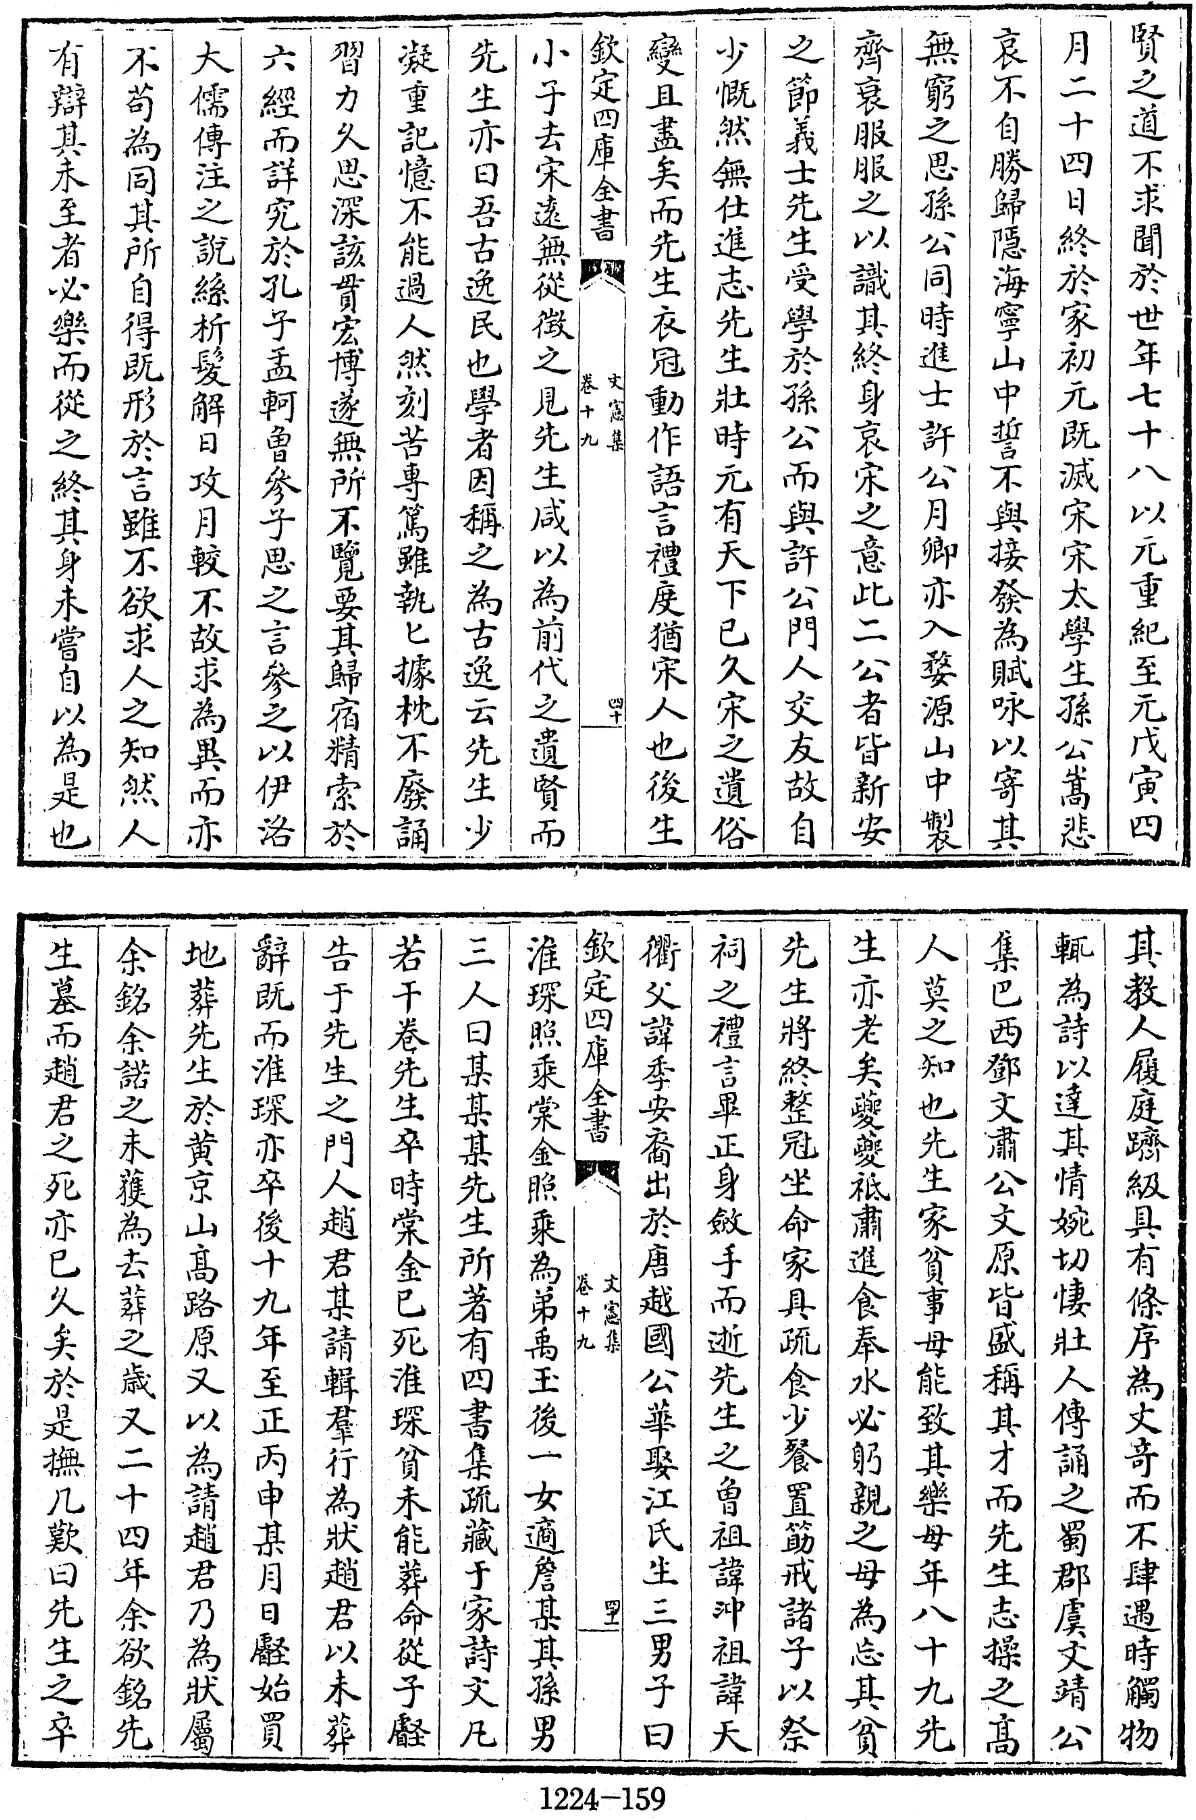 賢之道不求聞於世年七十八以元重紀至元戊寅四
月二十四日終於家初元既滅宋宋太學生孫公嵩悲
哀不自勝歸隱海寧山中誓不與接發為賦咏以寄其
無窮之思孫公同時進士許公月卿亦入婺源山中製
齊衰服服之以識其終身哀宋之意此二公者皆新安
之節義士先生受學於孫公而與許公門人交友故自
少慨然無仕進志先生壯時元有天下已久宋之遺俗
變且盡矣而先生衣冠動作語言禮度猶宋人也後生
欽定四庫全書
文憲集
卷十九
四十
小子去宋遠無從徵之見先生咸以為前代之遺賢而
先生亦曰吾古逸民也學者因稱之為古逸云先生少
凝重記憶不能過人然刻苦専篤雖執匕據枕不廢誦
習力久思深該貫宏博遂無所不覽要其歸宿精索於
六經而詳究於孔子孟軻曾參子思之言參之以伊洛
大儒傳注之說絲析髮解日攻月較不故求為異而亦
不苟為同其所自得既形於言雖不欲求人之知然人
有辯其未至者必樂而從之終其身未嘗自以為是也
其教人履庭躋級具有條序為文竒而不肆遇時觸物
輒為詩以達其情婉切悽壯人傳誦之蜀郡虞文靖公
集巴西鄧文肅公文原皆盛稱其才而先生志操之髙
人莫之知也先生家貧事母能致其樂母年八十九先
生亦老矣夔夔祗肅進食奉水必躬親之母為忘其貧
先生將終整冠坐命家具疏食少餐置筯戒諸子以祭
祠之禮言畢正身斂手而逝先生之曾祖諱沖祖諱天
衢父諱季安裔出於唐越國公華娶江氏生三男子曰
欽定四庫全書
文憲集
卷十九
四十一
淮琛照乘棠金照乘為弟禹玉後一女適詹某其孫男
三人曰某某某先生所著有四書集疏藏于家詩文凡
若干卷先生卒時棠金已死淮琛貧未能葬命從子壡
告于先生之門人趙君某請輯羣行為狀趙君以未葬
辭既而淮琛亦卒後十九年至正丙申某月日壡始買
地葬先生於黄京山髙路原又以為請趙君乃為狀屬
余銘余諾之未獲為去葬之歳又二十四年余欲銘先
生墓而趙君之死亦已久矣於是撫几歎曰先生之卒
1224—159